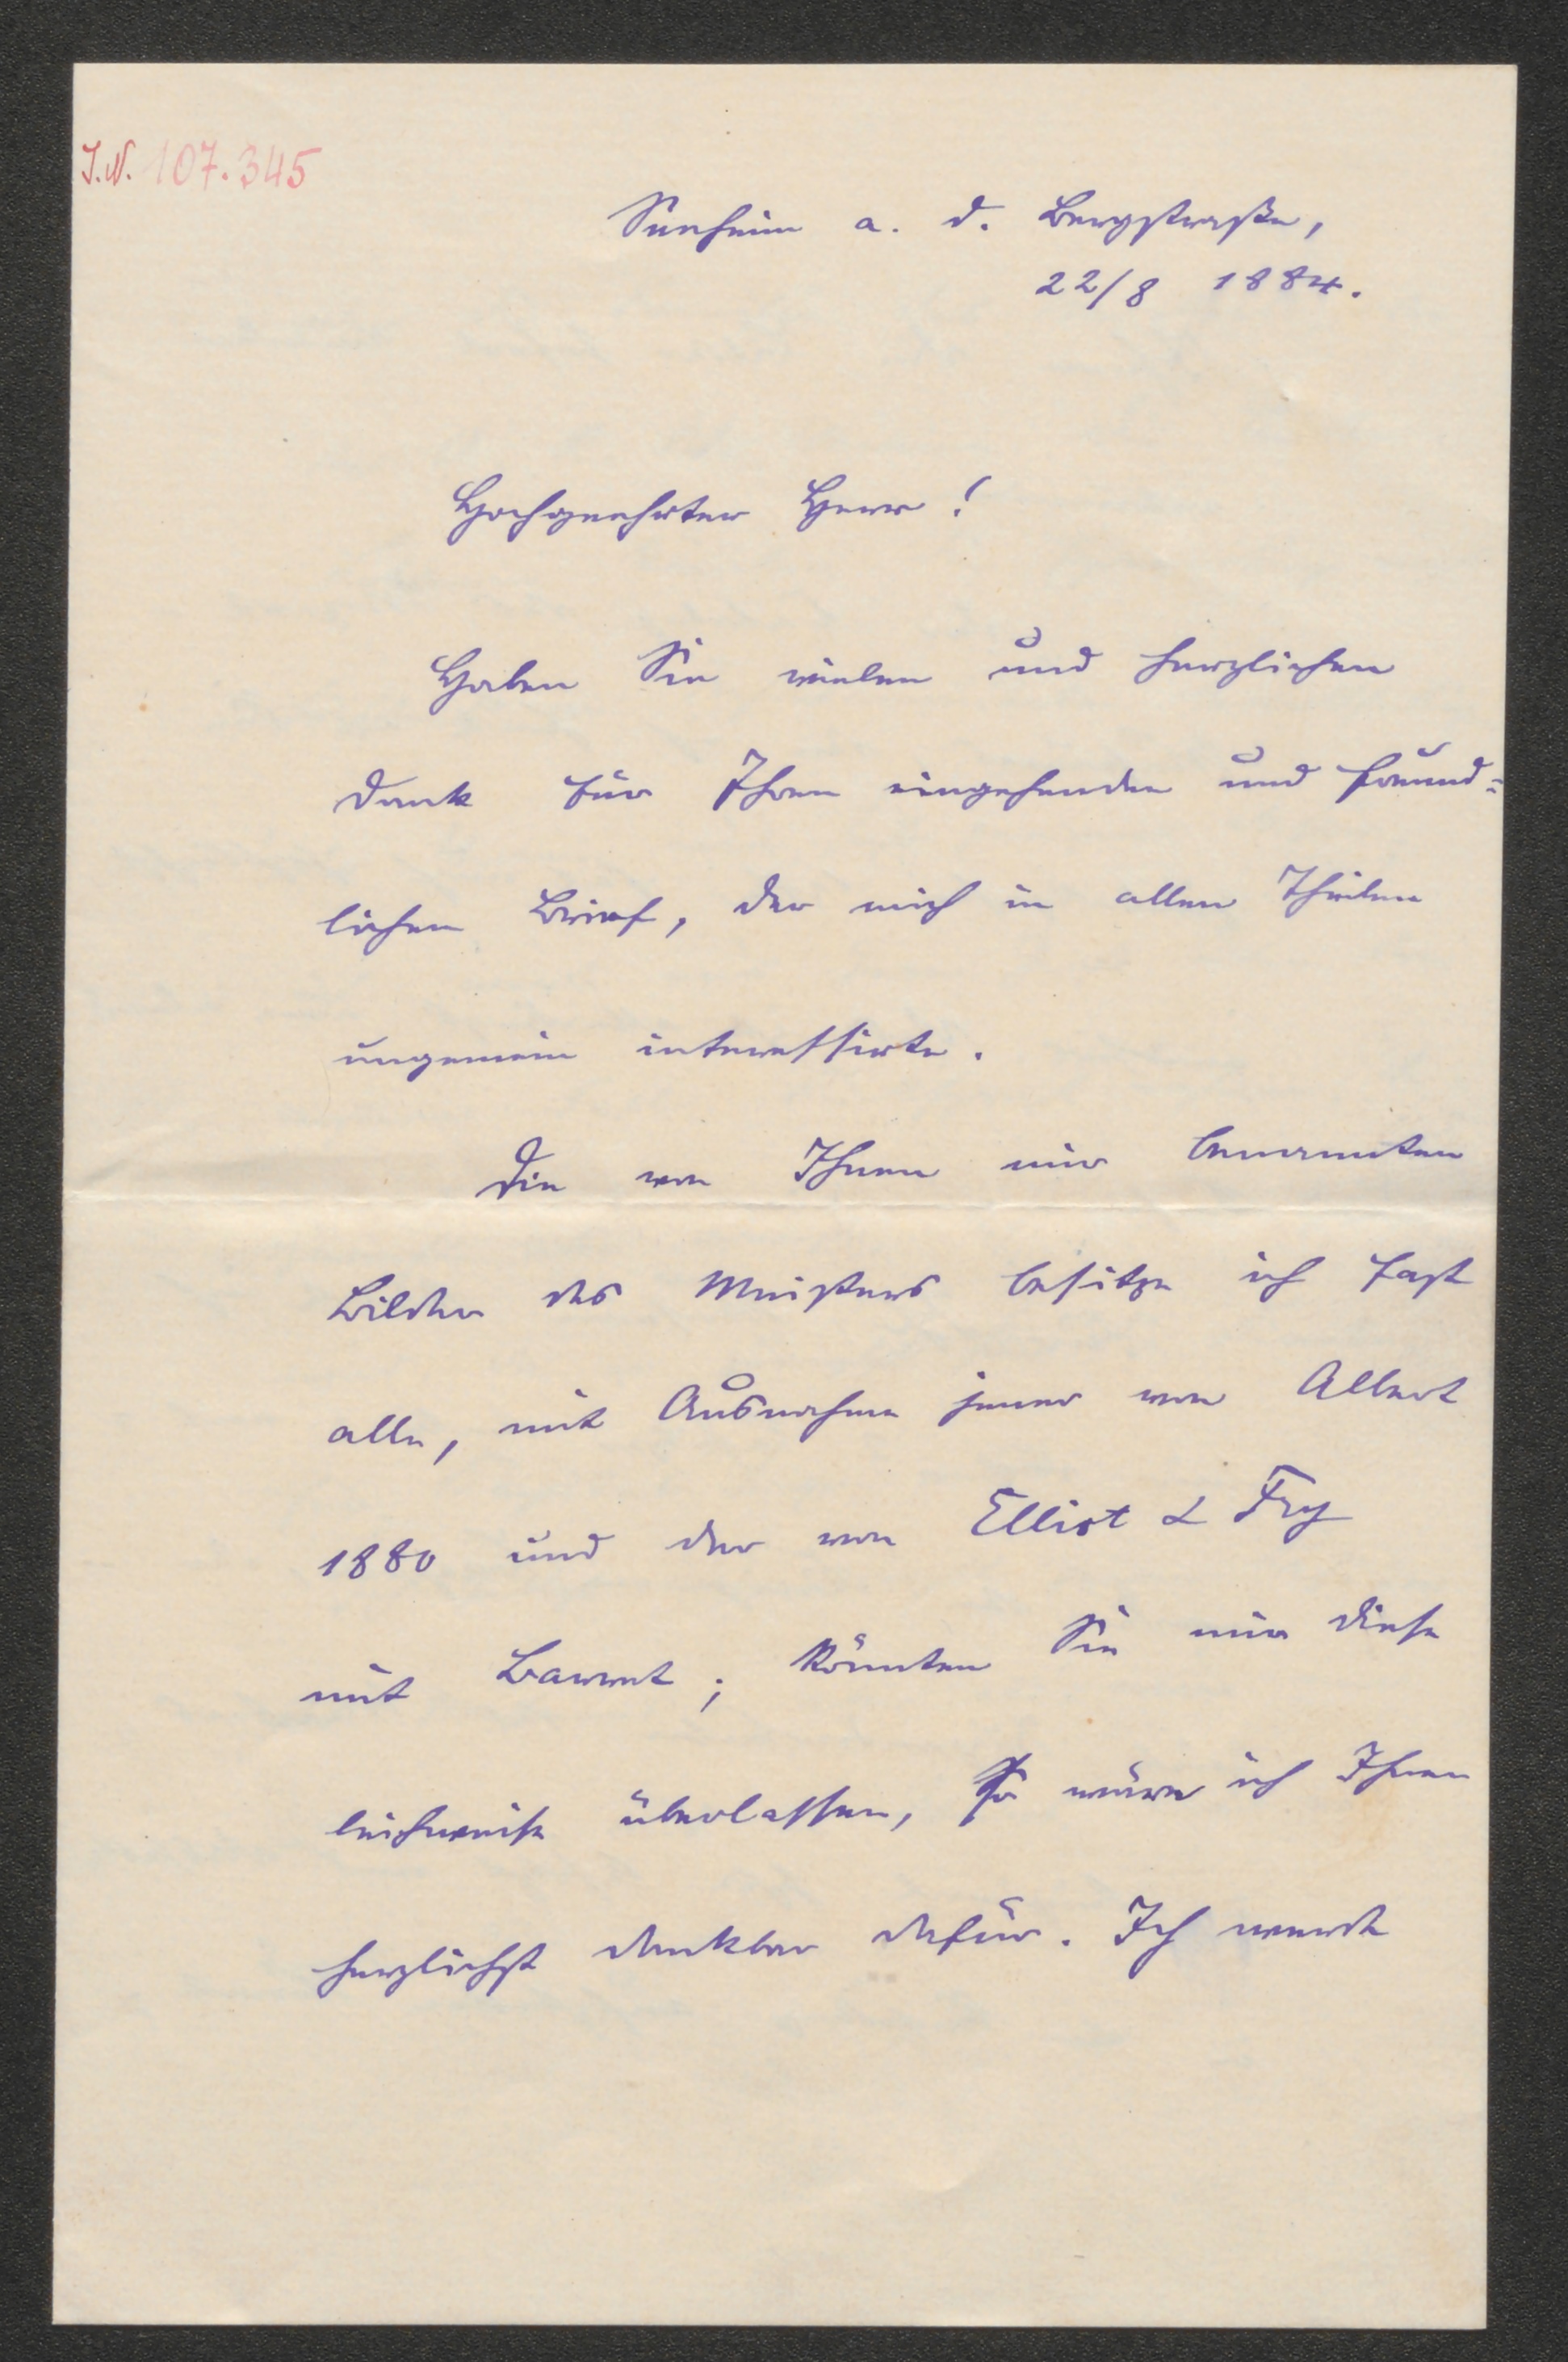 I.N. 107.345
Seeheim a. d. Bergstraße,
22/8 1884.
Hochgeehrter Herr!
Haben Sie vielen und herzlichen
Dank für Ihren eingehenden und freund=
lichen Brief, der mich in allen Theilen
ungemein interessirte.
Die von Ihnen mir benannten
Bilder des Meisters besitze ich fast
alle, mit Ausnahme jener von Albert
1880 und der von Elliot & Fry
mit ; könnten Sie mir diese
leihweise überlassen, so wäre ich Ihnen
herzlichst dankbar dafür. Ich werde